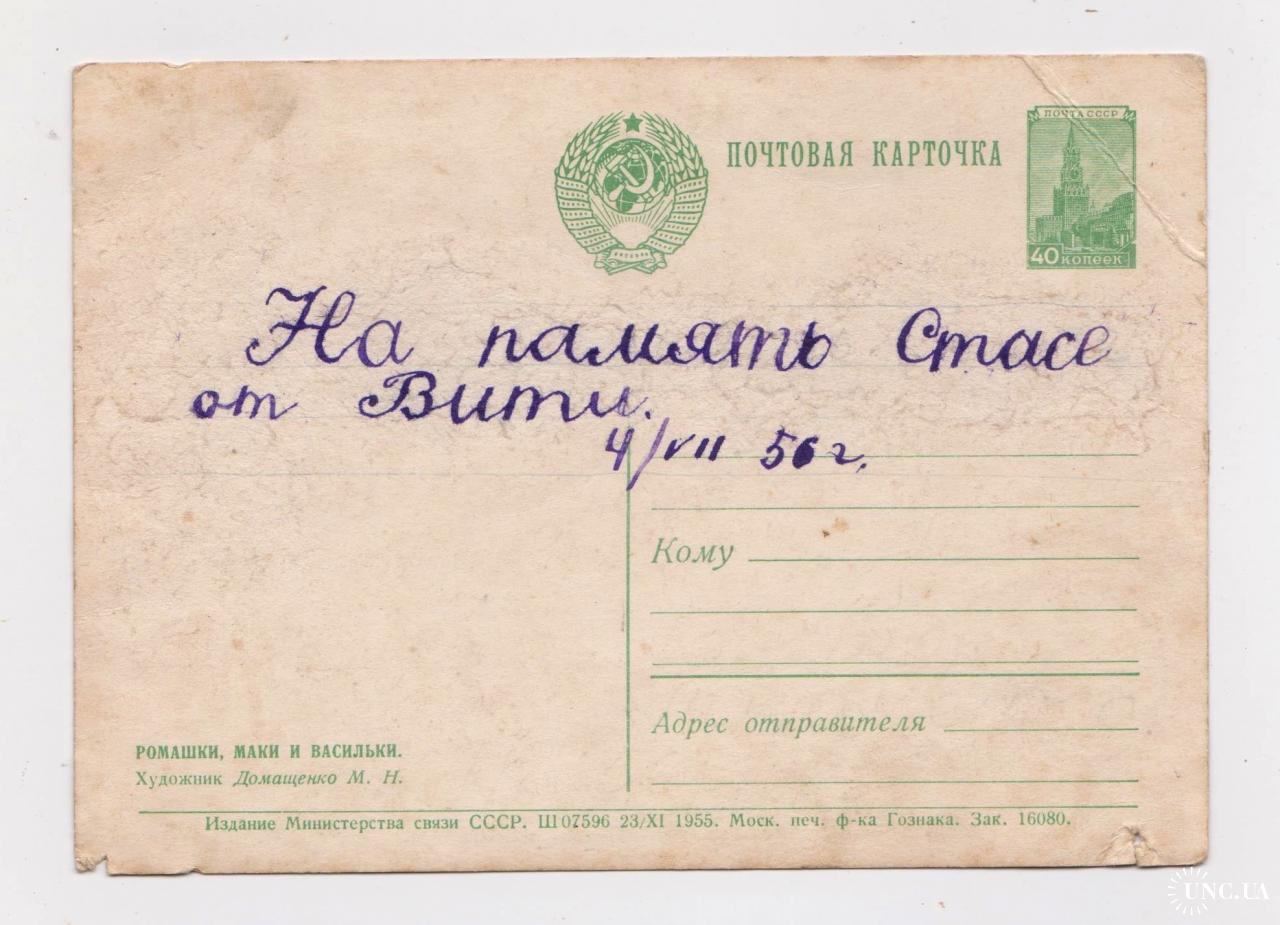 ПОЧТА СССР
ПОЧТОВАЯ КАРТОЧКА
40 КОПЕЕК
На память Стасе
от Вити.
4/VII 56 г.
Кому
Адрес отправителя
РОМАШКИ, МАКИ И ВАСИЛЬКИ.
Художник Домащенко М. Н.
Издание Министерства связи СССР. Ш07596 23/XI 1955. Моск. печ. ф-ка Гознака. Зак. 16080.
UNC.UA